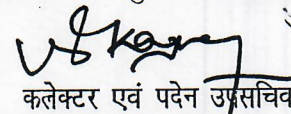 कलेक्टर एवं पदेन उपसचिव